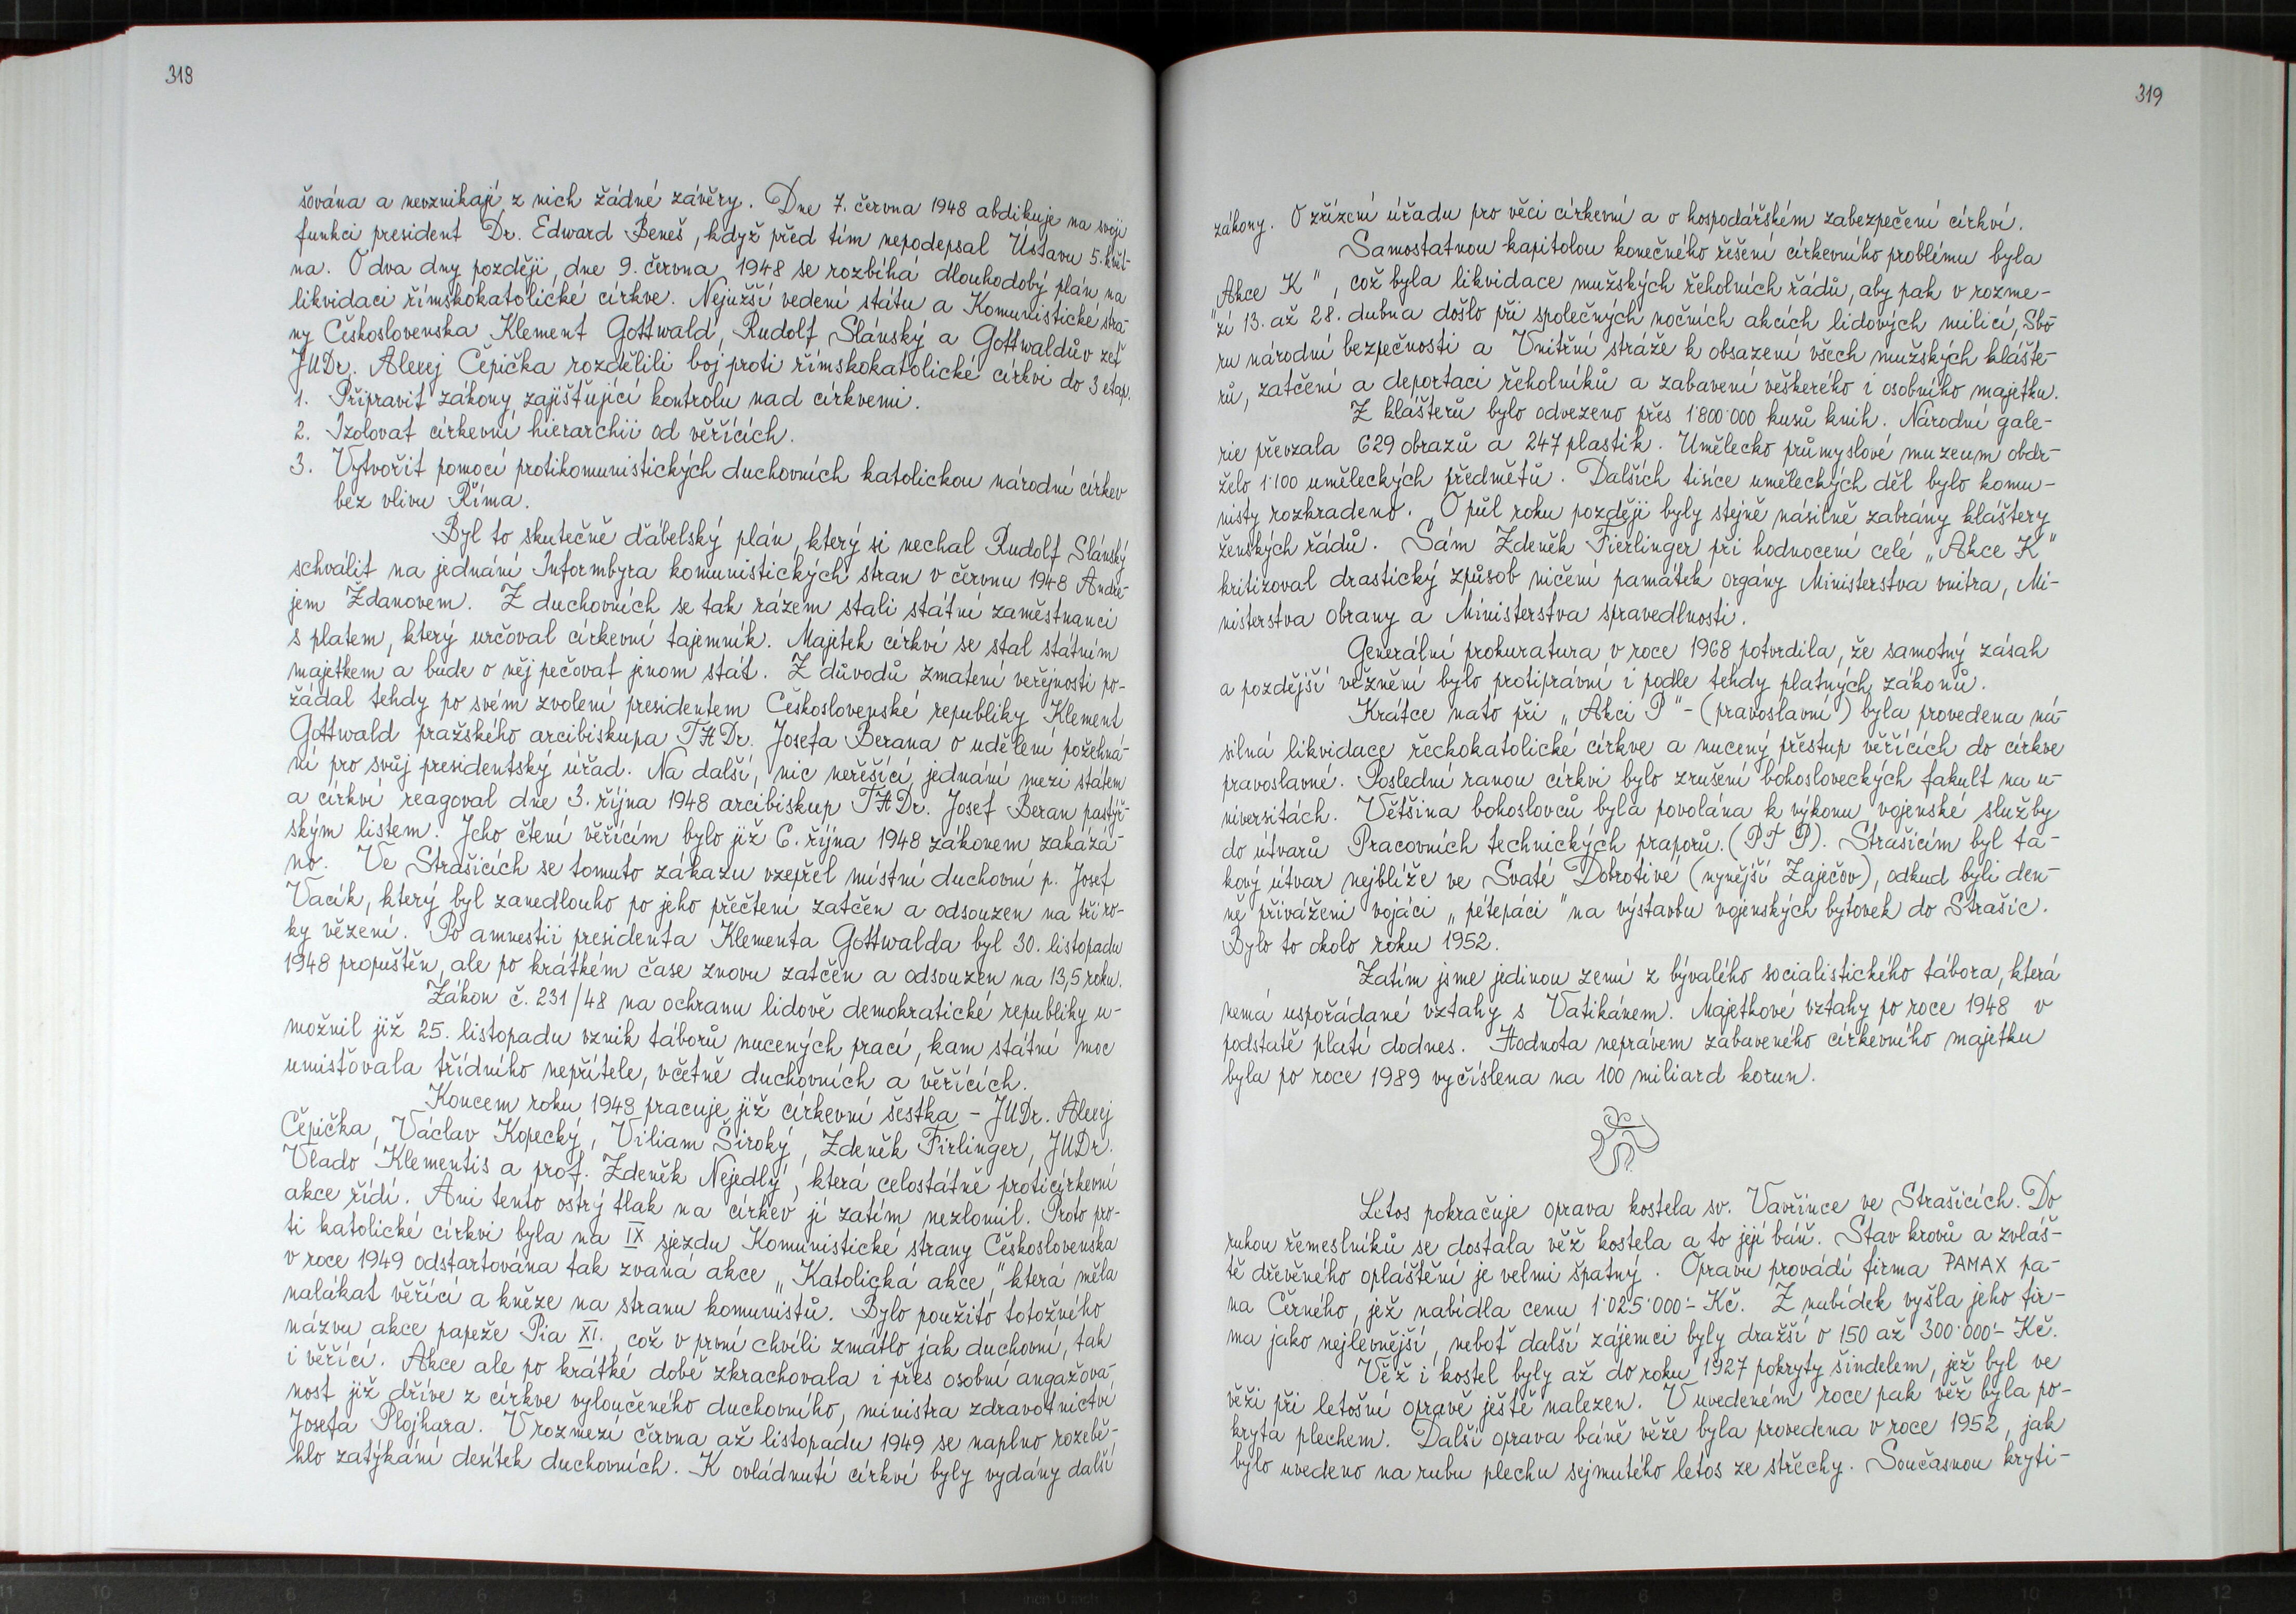 318
šována a nevznikají z nich žádné závěry. Dne 7. června 1948 abdikuje na svoji
funkci president Dr. Edward Beneš, když před tím nepodepsal Ústavu 5. květ-
na. O dva dny později, dne 9. června 1948 se rozbíhá dlouhodobý plán na
likvidaci římskokatolické církve. Nejužší vedení státu a Komunistické stra-
ny Československa Klement Gottwald, Rudolf Slánský a Gottwaldův zeť
JUDr. Alexej Čepička rozdělili boj proti římskokatolické církvi do 3 etap.
1. Připravit zákony zajišťující kontrolu nad církvemi.
2. Izolovat církevní hierarchii od věřících.
3. Vytvořit pomocí protikomunistických duchovních katolickou národní církev
bez vlivu Říma.
Byl to skutečně ďábelský plán, který si nechal Rudolf Slánský
schválit na jednání Informbyra komunistických stran v červnu 1948 Andre-
jem Ždanovem. Z duchovních se tak rázem stali státní zaměstnanci
s platem, který určoval církevní tajemník. Majetek církví se stal státním
majetkem a bude o něj pečovat jenom stát. Z důvodů zmatení veřejnosti po-
žádal tehdy po svém zvolení presidentem Československé republiky Klement
Gottwald pražského arcibiskupa THDr. Josefa Berana o udělení požehná-
ní pro svůj presidentský úřad. Na další, nic neřešící jednání mezi státem
a církví reagoval dne 3. října 1948 arcibiskup THDr. Josef Beran pastýř-
ským listem. Jeho čtení věřícím bylo již 6. října 1948 zákonem zakázá-
no. Ve Strašicích se tomuto zákazu vzepřel místní duchovní p. Josef
Vacík, který byl zanedlouho po jeho přečtení zatčen a odsouzen na tři ro-
ky vězení. Po amnestii presidenta Klementa Gottwalda byl 30. listopadu
1948 propuštěn, ale po krátkém čase znovu zatčen a odsouzen na 13,5 roku.
Zákon č. 231/48 na ochranu lidově demokratické republiky u-
možnil již 25. listopadu vznik táborů nucených prací, kam státní moc
umisťovala třídního nepřítele, včetně duchovních a věřících.
Koncem roku 1948 pracuje již církevní šestka - JUDr. Alexej
Čepička, Václav Kopecký, Viliam Široký, Zdeněk Firlinger, JUDr.
Vlado Klementis a prof. Zdeněk Nejedlý, která celostátně proticírkevní
akce řídí. Ani tento ostrý tlak na církev ji zatím nezlomil. Proto pro-
ti katolické církvi byla na IX sjezdu Komunistické strany Československa
v roce 1949 odstartována tak zvaná akce „Katolická akce", která měla
nalákat věřící a kněze na stranu komunistů. Bylo použito totožného
názvu akce papeže Pia XI., což v první chvíli zmátlo jak duchovní, tak
i věřící. Akce ale po krátké době zkrachovala i přes osobní angažova-
nost již dříve z církve vyloučeného duchovního, ministra zdravotnictví
Josefa Plojhara. V rozmezí června až listopadu 1949 se naplno rozebě-
hlo zatýkání desítek duchovních. K ovládnutí církví byly vydány další
319
zákony. O zřízení úřadu pro věci církevní a o hospodářském zabezpečení církví.
Samostatnou kapitolou konečného řešení církevního problému byla
„Akce K", což byla likvidace mužských řeholních řádů, aby pak v rozme-
zí 13. až 28. dubna došlo při společných nočních akcích lidových milicí, Sbo-
ru národní bezpečnosti a Vnitřní stráže k obsazení všech mužských klášte-
rů, zatčení a deportaci řeholníků a zabavení veškerého i osobního majetku.
Z klášterů bylo odvezeno přes 1'800'000 kusů knih. Národní gale-
rie převzala 629 obrazů a 247 plastik. Umělecko průmyslové muzeum obdr-
želo 1'100 uměleckých předmětů. Dalších tisíce uměleckých děl bylo komu-
nisty rozkradeno. O půl roku později byly stejně násilně zabrány kláštery
ženských řádů. Sám Zdeněk Fierlinger při hodnocení celé „Akce K"
kritizoval drastický způsob ničení památek orgány Ministerstva vnitra, Mi-
nisterstva obrany a Ministerstva spravedlnosti.
Generální prokuratura v roce 1968 potvrdila, že samotný zásah
a pozdější věznění bylo protiprávní i podle tehdy platných zákonů.
Krátce nato při „Akci P" - (pravoslavní) byla provedena ná-
silná likvidace řeckokatolické církve a nucený přestup věřících do církve
pravoslavné. Poslední ranou církvi bylo zrušení bohosloveckých fakult na u-
niversitách. Většina bohoslovců byla povolána k výkonu vojenské služby
do útvarů Pracovních technických praporů. (PTP). Strašicím byl ta-
kový útvar nejblíže ve Svaté Dobrotivé (nynější Zaječov), odkud byli den-
ně přiváženi vojáci „pétépáci" na výstavbu vojenských bytovek do Strašic.
Bylo to okolo roku 1952.
Zatím jsme jedinou zemí z bývalého socialistického tábora, která
nemá uspořádané vztahy s Vatikánem. Majetkové vztahy po roce 1948 v
podstatě platí dodnes. Hodnota neprávem zabaveného církevního majetku
byla po roce 1989 vyčíslena na 100 miliard korun.
Letos pokračuje oprava kostela sv. Vavřince ve Strašicích. Do
rukou řemeslníků se dostala věž kostela a to její báň. Stav krovů a zvláš-
tě dřevěného opláštění je velmi špatný. Opravu provádí firma PAMAX pa-
na Černého, jež nabídla cenu 1'025'000'- Kč. Z nabídek vyšla jeho fir-
ma jako nejlevnější, neboť další zájemci byly dražší o 150 až 300'000'- Kč.
Věž i kostel byly až do roku 1927 pokryty šindelem, jež byl ve
věži při letošní opravě ještě nalezen. V uvedeném roce pak věž byla po-
kryta plechem. Další oprava báně věže byla provedena v roce 1952, jak
bylo uvedeno na rubu plechu sejmutého letos ze střechy. Současnou kryti-